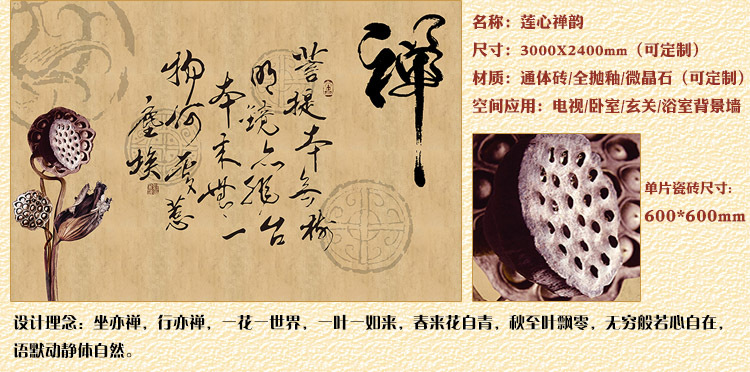 禅
菩提本无树
明镜亦非台
本来无一
物何处惹
尘埃
名称：莲心禅韵
尺寸：3000X2400mm（可定制）
材质：通体砖/全抛釉/微晶石（可定制）
空间应用：电视/卧室/玄关/浴室背景墙
单片瓷砖尺寸：
600*600mm
设计理念：坐亦禅，行亦禅，一花一世界，一叶一如来，春来花自青，秋至叶飘零，无穷般若心自在，
语默动静体自然。